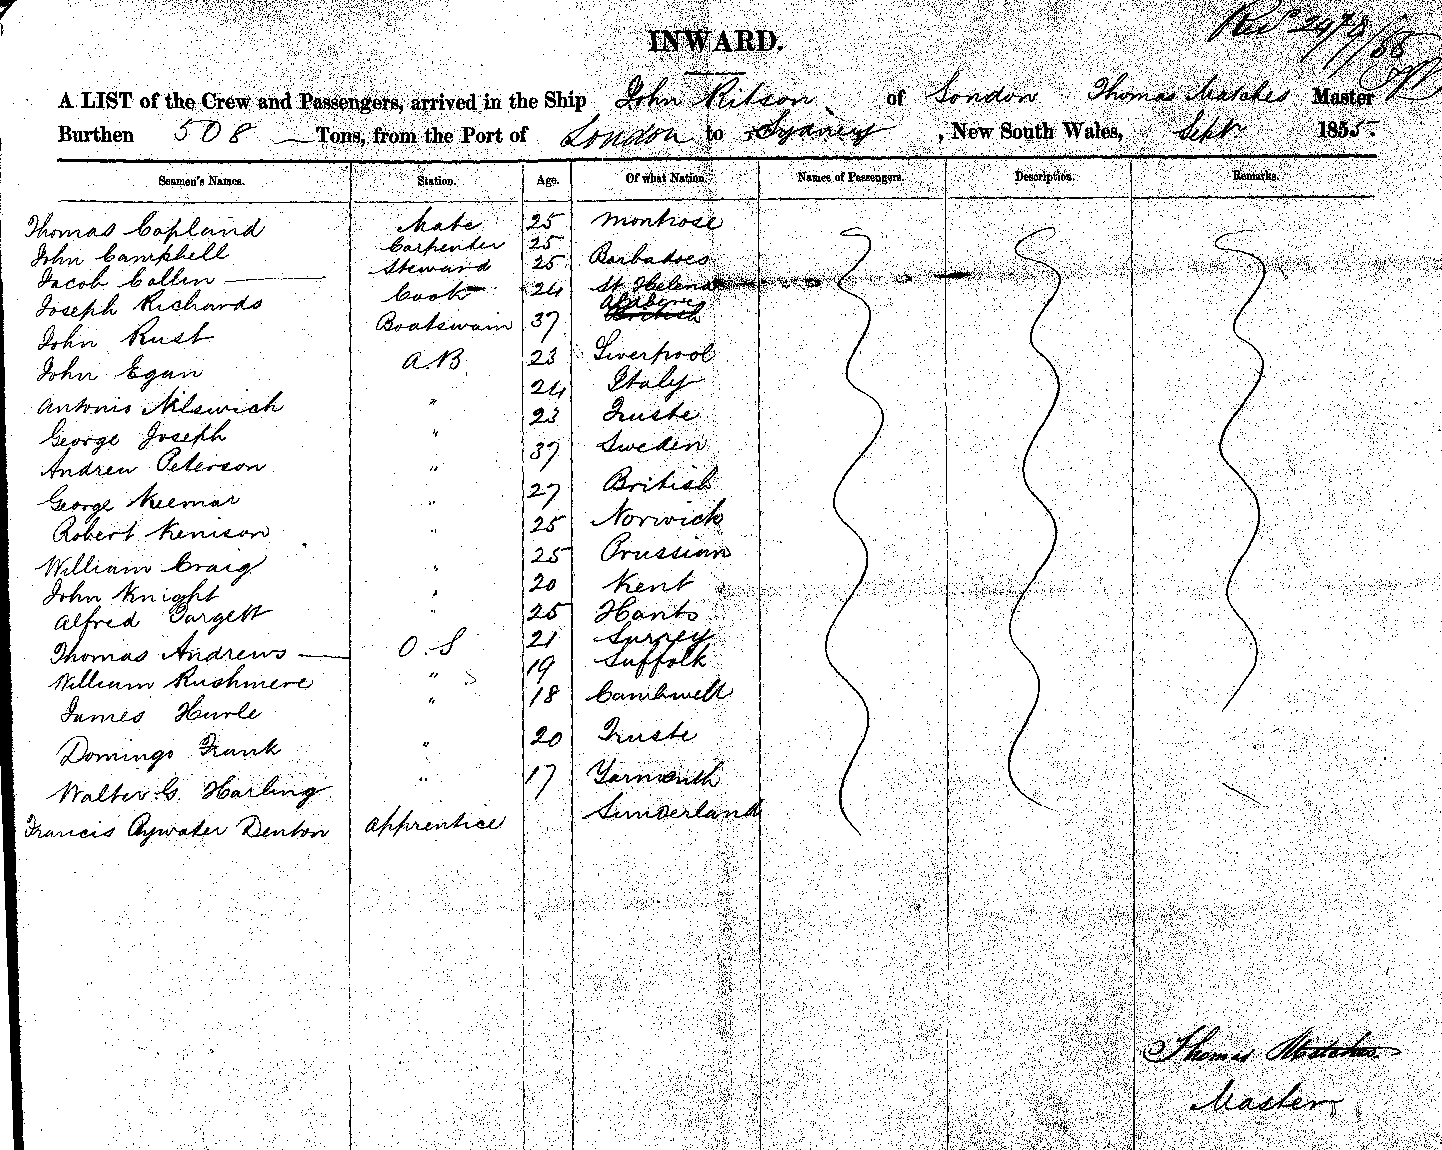 INWARD.
A LIST of the Crew and Passengers, arrived in the Ship John Ritson of London Thomas Matches Master
Burthen 508 Tons, from the Port of London to Sydney, New South Wales, Sept 1855.
Seamen's Names. Station. Age. Of what Nation. Names of Passengers. Description. Remarks.
Thomas Copland Mate 25 Montrose
John Campbell Carpenter 25
Jacob Collin Steward 25 Barbadoes
Joseph Richards Cook 24 St Helena
John Rust Boatswain 37 British
John Egan A.B. 23 Liverpool
Antonio Milswich " 24 Italy
George Joseph " 23 Trieste
Andrew Peterson " 37 Sweden
George Keemar " 27 British
Robert Kenison " 25 Norwich
William Craig " 25 Prussian
John Knight " 20 Kent
Alfred Targett " 25 Hants
Thomas Andrews O S 21 Surrey
William Rushmere " 19 Suffolk
James Hurle " 18 Camberwell
Domingo Frank " 20 Trieste
Walter G. Harling " 17 Yarmouth
Francis Bywater Denton Apprentice Sunderland
Thomas Matches
Master